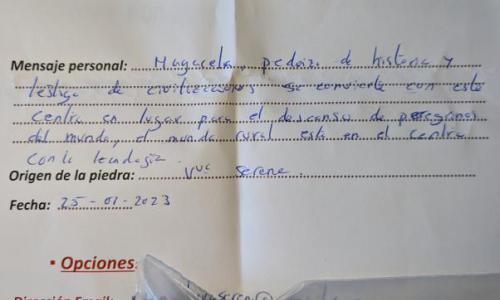 Mensaje personal: Magacela, pedazo de historia y
testigo de civilizaciones se convierte con este
centro en lugar para el descanso de peregrinos
del mundo, el mundo rural está en el centro
con la
Origen de la piedra: serena
Fecha: 25-01-2023
▪ Opciones:
Dirección Email: